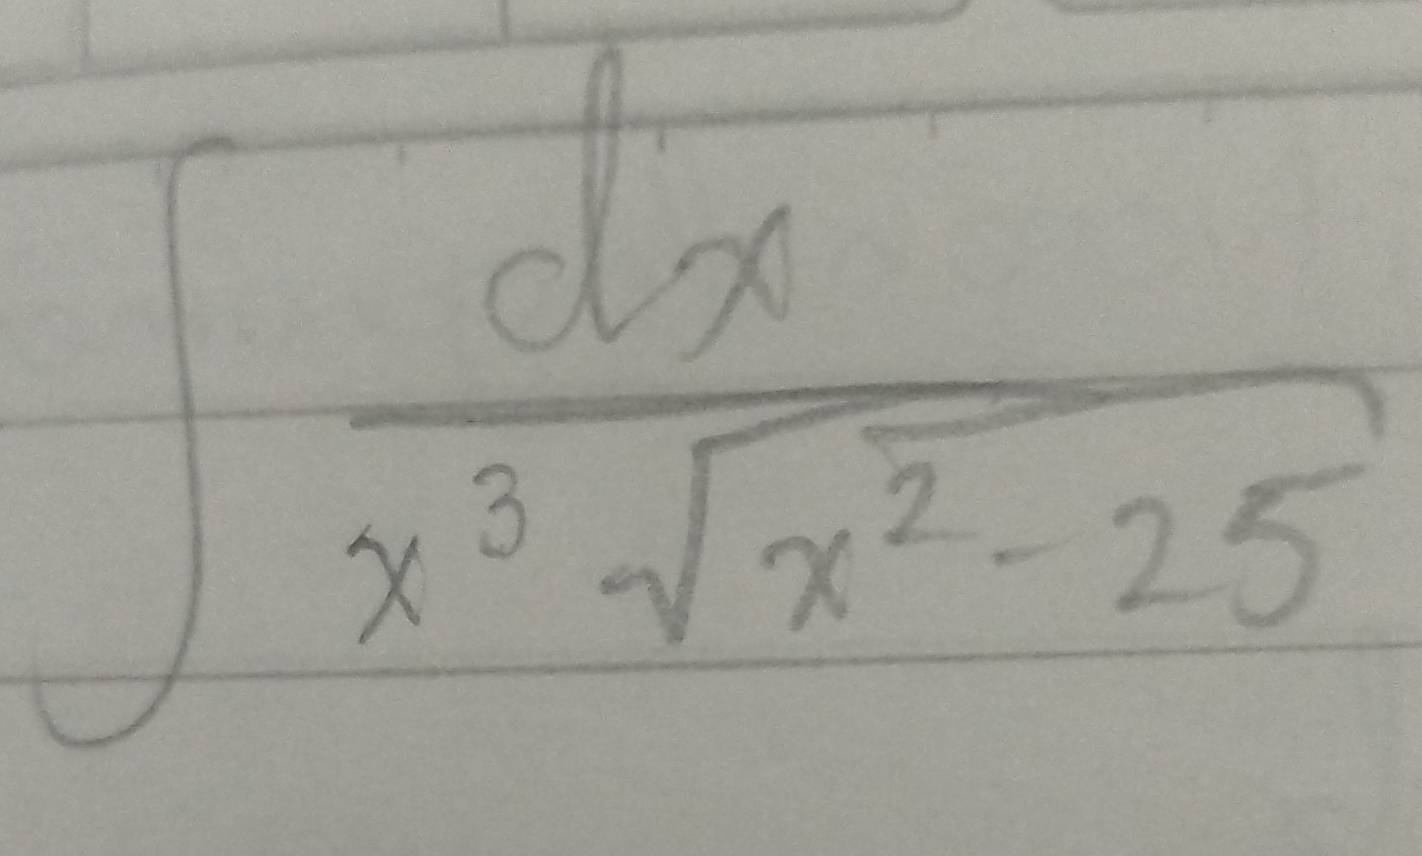 ∫ dx / x³ √(x² - 25)